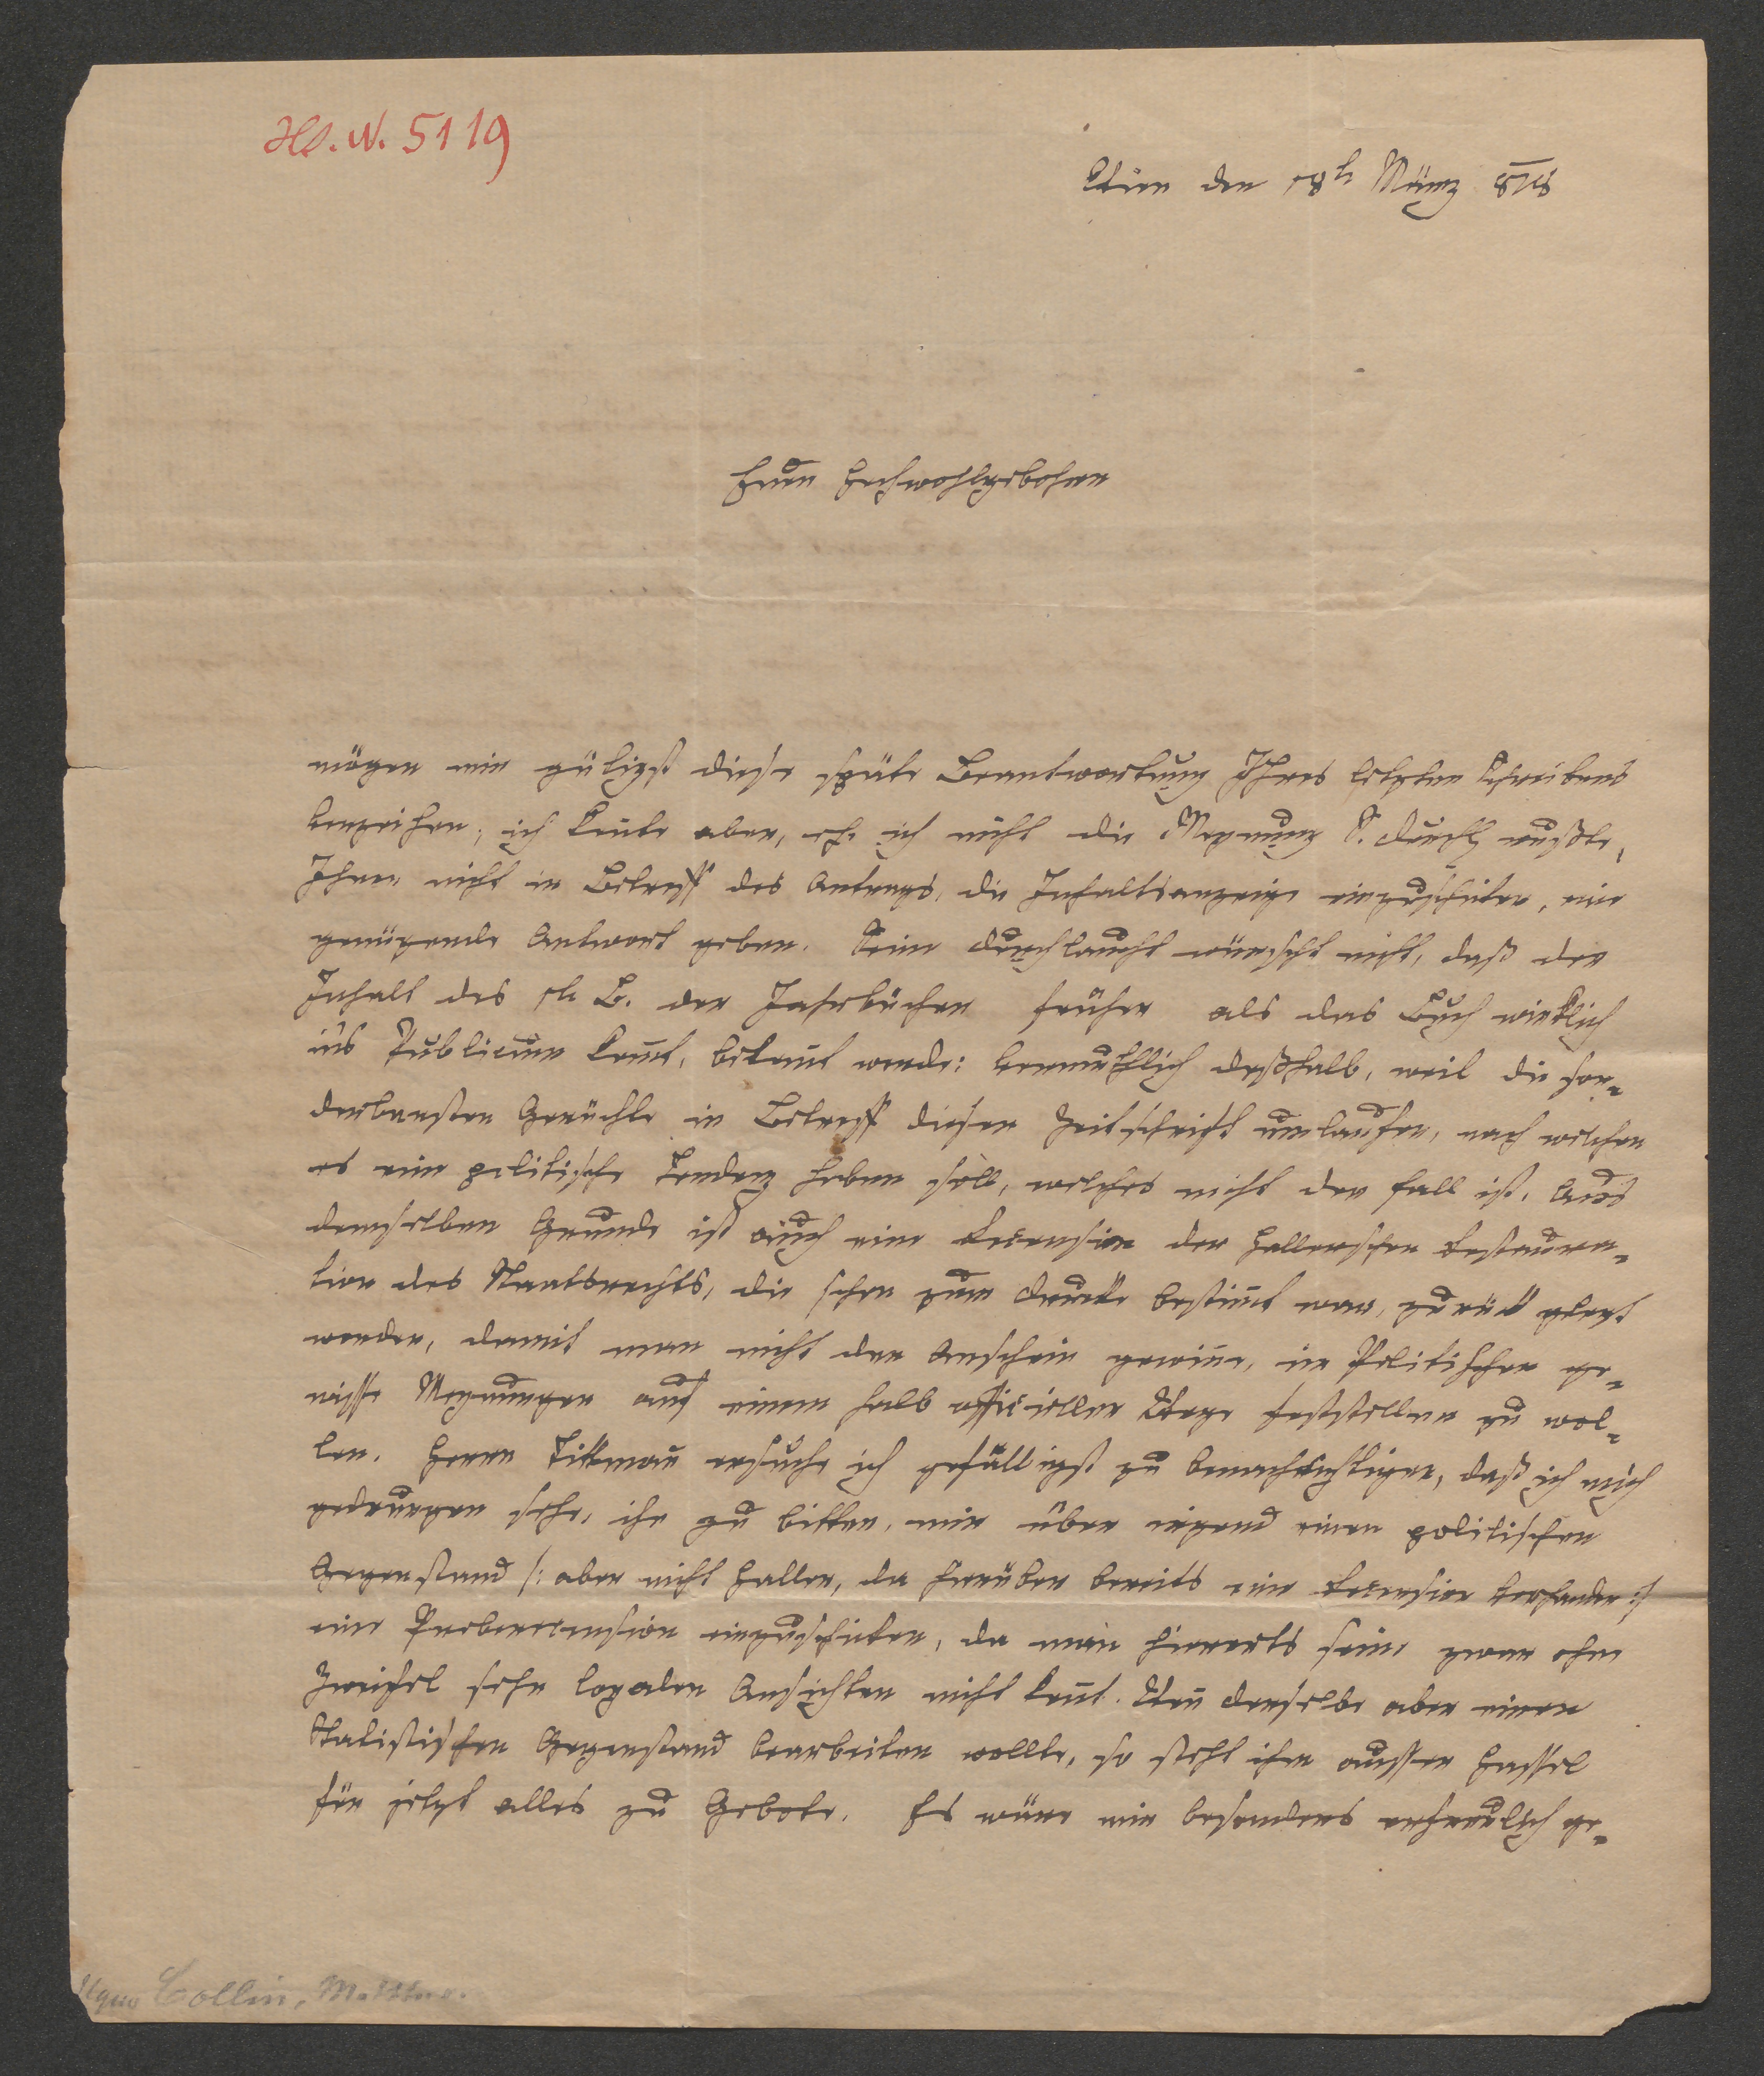 Hs. N. 5119
Wien den 18t März 818
Euer Hochwohlgebohren
mögen mir gütigst diese späte Beantwortung Ihres letzten Schreibens
verzeihen; ich konte aber, ehe ich nicht die Meynung S. Durchl wußte,
Ihnen nicht in Betreff des Antrags, die Inhaltsanzeige einzuschicken, eine
genügende Antwort geben. Seine Durchlaucht wünscht nicht, daß der
Inhalt des 1t B. der Jahrbücher früher als das Buch wirklich
ins Publicum komt, bekant werde: vermuthlich deßhalb, weil die son-
derbarsten Gerüchte in Betreff dieser Zeitschrift umlaufen, nach welchen
es eine politische Tendenz haben soll, welches nicht der Fall ist. Aus
demselben Grunde ist auch eine Recension der Hallerschen Restaura-
tion des Staatsrechts, die schon zum Drucke bestimt war, zurück gelegt
worden, damit man nicht den Anschein gewine, im Politischen ge-
wisse Meynungen auf einem halb officiellen Wege feststellen zu wol-
len. Herrn Tittman ersuche ich gefälligst zu benachrichtigen, daß ich mich
gedrungen sehe, ihn zu bitten, mir über irgend einen politischen
Gegenstand /: aber nicht Haller, da hierüber bereits eine Recension vorhanden :/
eine Proberecension einzuschicken, da man hierorts seine zwar ohne
Zweifel sehr loyalen Ansichten nicht kent. Wen derselbe aber einen
Statistischen Gegenstand bearbeiten wollte, so steht ihm ausser Hassel
für jetzt alles zu Gebote. Es wäre mir besonders erfreulich ge-
Collin, Matthäus.